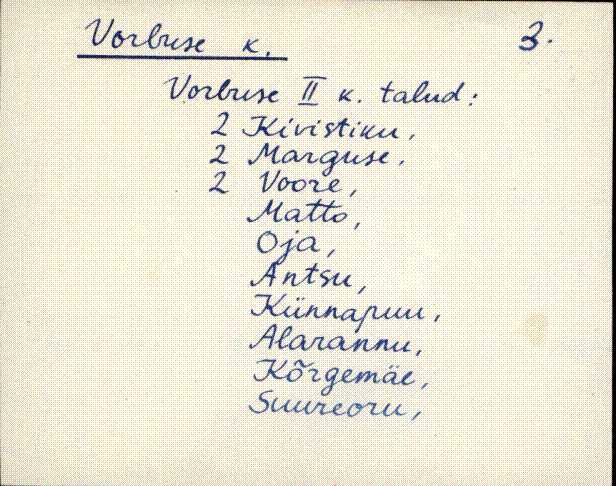 Vorbuse k. 3.
Vorbuse II k. talud:
2 Kivistiku,
2 Marguse,
2 Voore,
Matto,
Oja,
Antsu,
Künnapuu,
Alarannu,
Kõrgemäe,
Suureoru,